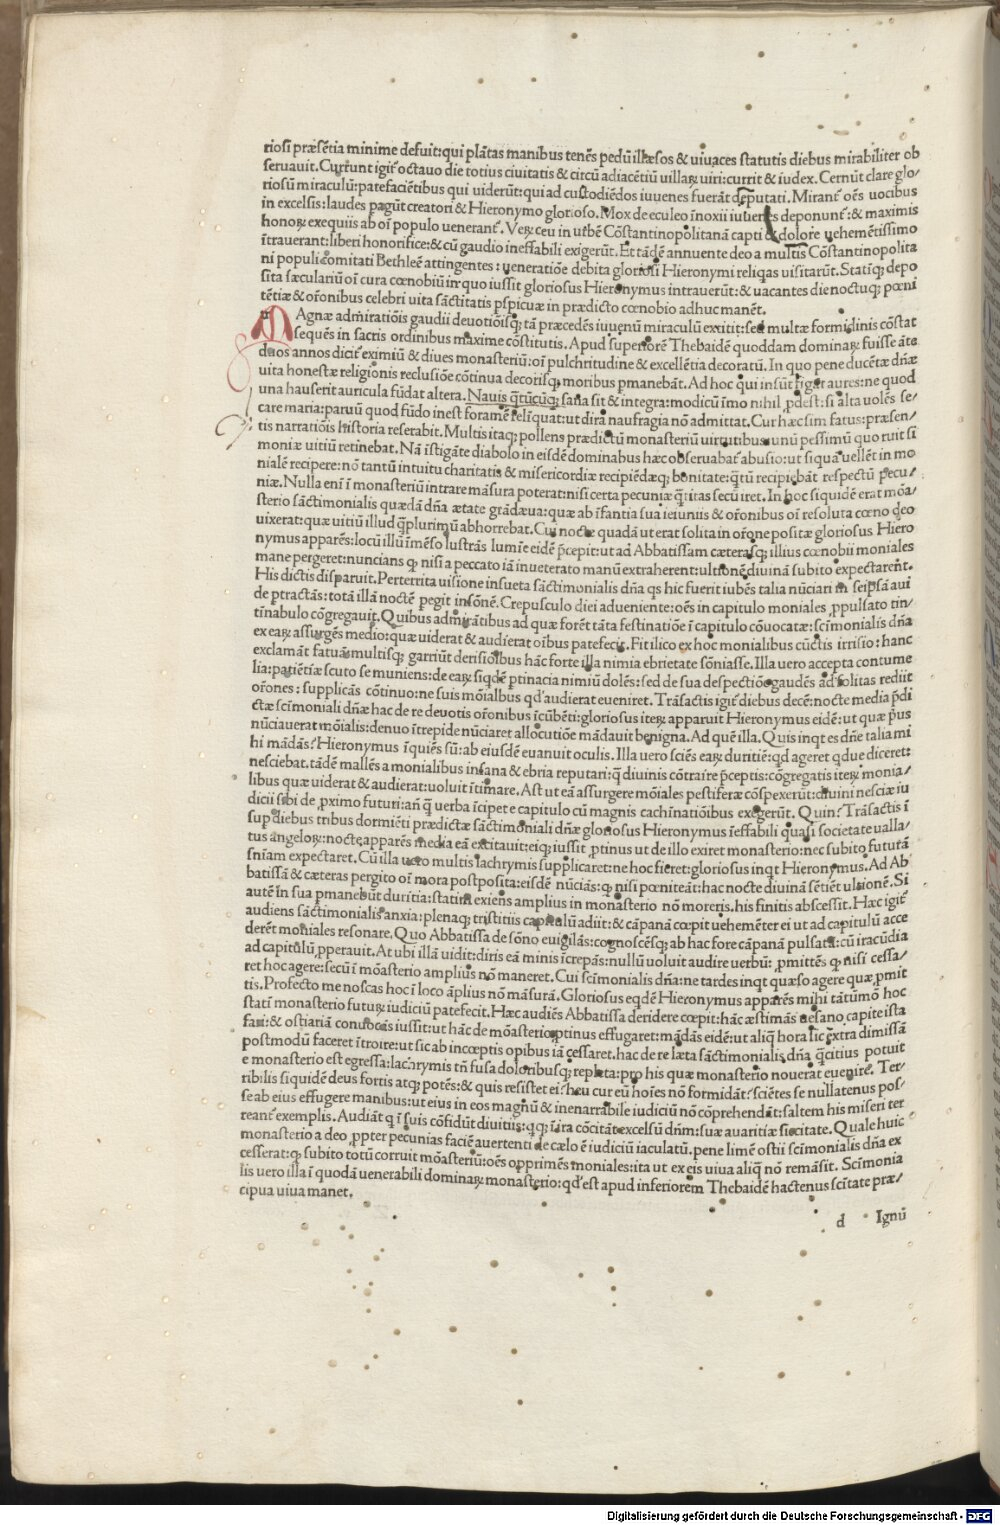 riosi præsẽtia minime defuit:qui plãtas manibus tenẽs pedũ illæsos & uiuaces statutis diebus mirabiliter ob
seruauit. Currunt igit᷑ octauo die totius ciuitatis & circũ adiacẽtiũ uillaꝝ uiri: currit & iudex. Cernũt clare glo/
riosũ miraculũ: patefaciẽtibus qui uiderũt: qui ad custodiẽdos iuuenes fuerãt deputati. Mirant᷑ oẽs uocibus
in excelsis: laudes pagũt creatori & Hieronymo glorioso. Mox de eculeo ĩnoxii iuuenes deponunt᷑: & maximis
honoꝝ exequiis ab oĩ populo uenerant᷑. Veꝝ ceu in urbẽ Cõstantinopolitanã capti & dolore uehemẽtissimo
ĩtrauerant: liberi honorifice: & cũ gaudio ineffabili exigerũt. Et tãdẽ annuente deo a multis Cõstantinopolita
ni populi comitati Bethleẽ attingentes: ueneratiõe debita gloriosi Hieronymi reliqas uisitarũt. Statiqꝫ depo
sita sæculariũ oĩ cura cœnobiũ in quo iussit gloriosus Hieronymus intrauerũt: & uacantes die noctuqꝫ pœni
tẽtiæ & orõnibus celebri uita sãctitatis pspicuæ in prædicto cœnobio adhuc manẽt.
MAgnæ admiratiõis gaudii deuotiõisqꝫ tã præcedẽs iuuenũ miraculũ exitit: sed multæ formidinis cõstat
sequẽs in sacris ordinibus maxime cõstitutis. Apud superiorẽ Thebaidẽ quoddam dominaꝝ fuisse ãte
duos annos dicit᷑ eximiũ & diues monasteriũ: oĩ pulchritudine & excellẽtia decoratũ. In quo pene ducẽtæ dñæ
uita honestæ religionis reclusiõe cõtinua decorisqꝫ moribus pmanebãt. Ad hoc qui insũt figat aures: ne quod
una hauserit auricula fũdat altera. Nauis q̃tũcũqꝫ sana sit & integra: modicũ imo nihil ꝓdest: si alta uolẽs se/
care maria: paruũ quod fũdo inest foramẽ relĩquat: ut dira naufragia nõ admittat. Cur hæc sim fatus: præsen/
tis narratiõis historia reserabit. Multis itaqꝫ pollens prædictũ monasteriũ uirtutibus: unũ pessimũ quo ruit si
moniæ uitiũ retinebat. Nã ĩstigãte diabolo in eisdẽ dominabus hæc obseruabat᷑ abusio: ut si quã uellẽt in mo
nialẽ recipere: nõ tantũ intuitu charitatis & misericordiæ recipiẽdæqꝫ bonitate: q̃tũ recipiebãt respectũ pecu/
niæ. Nulla enĩ ĩ monasteriũ intrare mãsura poterat: nisi certa pecuniæ q̃titas secũ iret. In hoc siquidẽ erat mõa/
sterio sãctimonialis quædã dña ætate grãdæua: quæ ab ĩfantia sua ieiuniis & orõnibus oĩ resoluta cœno deo
uixerat: quæ uitiũ illud q̃plurimũ abhorrebat. Cui nocte quadã ut erat solita in orõne positæ gloriosus Hiero
nymus apparẽs: locũ illũ ĩmẽso lustrãs lumĩe eidẽ p̃cepit: ut ad Abbatissam cæterasqꝫ illius cœnobii moniales
mane pergeret: nuncians ꝙ nisi a peccato iã inueterato manũ extraherent: ultionẽ diuinã subito expectarent.
His dictis disparuit. Perterrita uisione insueta sãctimonialis dña qs hic fuerit iubẽs talia nũciari in seipsã aui
de ptractãs: totã illã noctẽ pegit insõnẽ. Crepusculo diei adueniente: oẽs in capitulo moniales ꝓpulsato tin/
tĩnabulo cõgregauit. Quibus admirãtibus ad quæ forẽt tãta festinatiõe ĩ capitulo cõuocatæ: scĩmonialis dña
ex eaꝝ assurgẽs medio: quæ uiderat & audierat oĩbus patefecit. Fit ilico ex hoc monialibus cũctis irrisio: hanc
exclamãt fatuã: multisqꝫ garriũt derisiõibus hãc forte illa nimia ebrietate sõniasse. Illa uero accepta contume
lia: patiẽtiæ scuto se muniens: de eaꝝ siqdẽ ptinacia nimiũ dolẽs: sed de sua despectiõe gaudẽs ad solitas rediit
orõnes: supplicãs cõtinuo: ne suis mõialbus qd'audierat eueniret. Trãsactis igit᷑ diebus decẽ: nocte media p̃di
ctæ scĩmoniali dñæ hac de re deuotis orõnibus ĩcũbẽti: gloriosus iteꝝ apparuit Hieronymus eidẽ: ut quæ p̃us
nũciauerat mõialis: denuo ĩtrepide nũciaret allocutiõe mãdauit benigna. Ad quẽ illa. Quis inqt es dñe talia mi
hi mãdãs? Hieronymus ĩquiẽs sũ: ab eiusdẽ euanuit oculis. Illa uero sciẽs eaꝝ duritiẽ: qd ageret q̃due diceret:
nesciebat. tãdẽ mallẽs a monialibus insana & ebria reputari: q̃ diuinis cõtraire p̃ceptis: cõgregatis iteꝝ monia/
libus quæ uiderat & audierat: uoluit ĩtimare. Ast ut eã assurgere mõiales pestiferæ cõspexerũt: diuini nesciæ iu
dicii sibi de ꝓximo futuri: añ q̃ uerba ĩcipet e capitulo cũ magnis cachĩnatiõibus exegerũt. Quin? Trãsactis ĩ
sup diebus tribus dormiẽti prædictæ sãctimoniali dñæ gloriosus Hieronymus ĩeffabili quasi societate ualla/
tus angeloꝝ: nocte apparẽs media eã excitauit: eiqꝫ iussit ꝓtinus ut de illo exiret monasterio: nec subito futurã
snĩam expectaret. Cũ illa uero multis lachrymis supplicaret: ne hoc fieret: gloriosus inqt Hieronymus. Ad Ab
batissã & cæteras pergito oĩ mora postposita: eisdẽ nũciãs: ꝙ nisi pœniteãt: hac nocte diuinã sẽtiẽt ultionẽ. Si
autẽ ĩn sua pmanebũt duritia: statim exiens amplius in monasterio nõ moreris. his finitis abscessit. Hæc igit᷑
audiens sãctimonialis anxia: plenaqꝫ tristitiis capitulũ adiit: & cãpanã cœpit uehemẽter ei ut ad capitulũ acce
derẽt moniales resonare. Quo Abbatissa de sõno euigilãs: cognoscẽsqꝫ ab hac fore cãpanã pulsatã: cũ iracũdia
ad capitulũ ꝓperauit. At ubi illã uidit: diris eã minis ĩcrepãs: nullũ uoluit audire uerbũ: ꝓmittẽs ꝙ nisi cessa/
ret hoc agere: secũ ĩ mõasterio amplius nõ maneret. Cui scĩmonialis dña: ne tardes inqt quæso agere quæ ꝓmit
tis. Profecto me noscas hoc ĩ loco ãplius nõ mãsurã. Gloriosus eqdẽ Hieronymus apparẽs mihi tãtũmõ hoc
statĩ monasterio futuꝝ iudiciũ patefecit. Hæc audiẽs Abbatissa deridere cœpit: hãc æstimãs uesano capite ista
fari: & ostiariã conuocãs iussit: ut hãc de mõasterio ꝓtinus effugaret: mãdãs eidẽ: ut aliq̃ hora sic extra dimissã
postmodũ faceret ĩtroire: ut sic ab incœptis opibus iã cessaret. hac de re læta sãctimonialis dña q̃citius potuit
e monasterio est egressa: lachrymis tñ fusa doloribusqꝫ repleta: pro his quæ monasterio nouerat euenire. Ter/
ribilis siquidẽ deus fortis atqꝫ potẽs: & quis resistet ei? heu cur eũ hoĩes nõ formidãt? sciẽtes se nullatenus pos/
se ab eius effugere manibus: ut eius in eos magnũ & inenarrabile iudiciũ nõ cõprehendãt: saltem his miseri ter
reant᷑ exemplis. Audiãt q ĩ suis cõfidũt diuitiis: qqꝫ ĩ ira cõcitãt excelsũ dñm: suæ auaritiæ siccitate. Quale huic
monasterio a deo ꝓpter pecunias faciẽ auertenti de cælo ẽ iudiciũ iaculatũ. pene limẽ ostii scĩmonialis dña ex
cesserat: ꝙ subito totũ corruit mõasteriũ: oẽs opprimẽs moniales: ita ut ex eis uiua aliq̃ nõ remãsit. Scĩmonia
lis uero illa ĩ quodã uenerabili dominaꝝ monasterio: qd'est apud inferiorẽm Thebaidẽ hactenus scĩtate præ/
cipua uiua manet.
d Ignũ
Digitalisierung gefördert durch die Deutsche Forschungsgemeinschaft - DFG